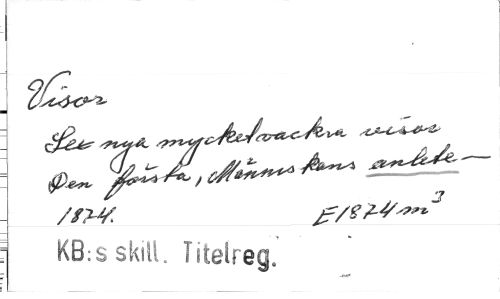 Visor
Sex nya mycket vackra visor
Den första, Människans anlete—
1874. E1874m³
KB:s skill. Titelreg.